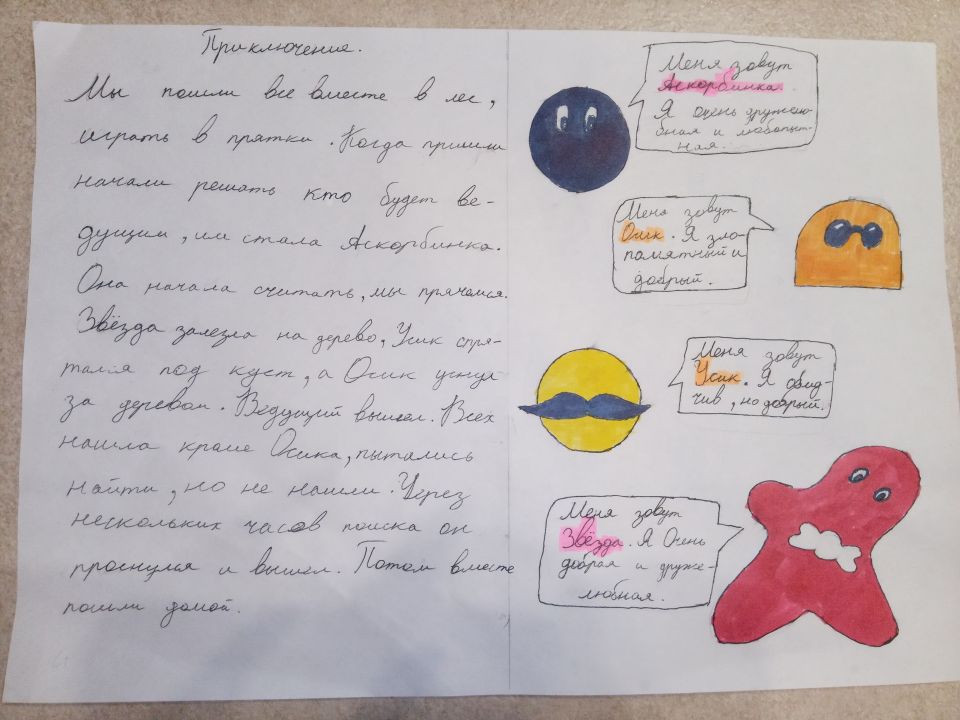 Приключения.
Мы пошли все вместе в лес,
играть в прятки. Когда пришли
начали решать кто будет ве-
дущим, им стала Аскорбинка.
Она начала считать, мы прячемся.
Звёзда залезла на дерево, Усик спря-
тался под куст, а Осик уснул
за деревом. Ведущий вышел. Всех
нашла кроме Осика, пытались
найти, но не нашли. Через
нескольких часов поиска он
проснулся и вышел. Потом вместе
пошли домой.
Меня зовут
Аскорбинка.
Я очень дружелю-
бная и любопыт-
ная.
Меня зовут
Осик. Я зло-
памятный и
добрый.
Меня зовут
Усик. Я обид-
чив, но добрый.
Меня зовут
Звёзда. Я Очень
добрая и друже-
любная.